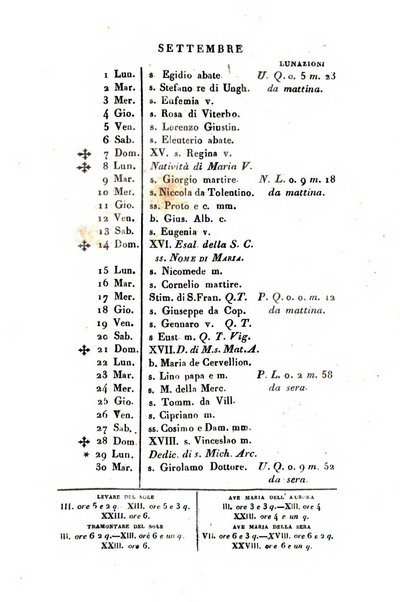 SETTEMBRE
LUNAZIONI
1 Lun. s Egidio abate U. Q. o. 5 m. 23
2 Mar. s. Stefano re di Ungh. da mattina.
3 Mer. s. Eufemia v.
4 Gio. s. Rosa di Viterbo.
5 Ven. s. Lorenzo Giustin.
6 Sab. s. Eleuterio abate.
✣ 7 Dom. XV. s. Regina v.
✣ 8 Lun. Natività di Maria V.
9 Mar. s. Giorgio martire. N. L. o. 9 m. 18
10 Mer. s. Niccola da Tolentino. da mattina.
11 Gio. ss. Proto e c. mm.
12 Ven. b. Gius. Alb. c.
13 Sab. s. Eugenia v.
✣ 14 Dom. XVI. Esal. della S. C.
ss. NOME DI MARIA.
15 Lun. s. Nicomede m.
16 Mar. s. Cornelio martire.
17 Mer. Stim. di S. Fran. Q. T. P. Q. o. 0. m. 12
18 Gio. s. Giuseppe da Cop. da mattina.
19 Ven. s. Gennaro v. Q. T.
20 Sab. s Eust m. Q. T. Vig.
✣ 21 Dom. XVII. D. di M. s. Mat. A.
22 Lun. b. Maria de Cervellion.
23 Mar. s. Lino papa e m. P. L. o. 2 m. 58
24 Mer. s. M. della Merc. da sera.
25 Gio. s. Tomm. da Vill.
26 Ven. s. Cipriano m.
27 Sab. ss. Cosimo e Dam. mm.
✣ 28 Dom. XVIII. s. Vinceslao m.
* 29 Lun. Dedic. di s. Mich. Arc.
30 Mar. s. Girolamo Dottore. U. Q. o. 9 m. 52
da sera.
LEVARE DEL SOLE
III. ore 5 e 2 q. XIII. ore 5 e 3 q.
XXIII. ore 6.
TRAMONTARE DEL SOLE
III. ore 6 e 2 q.—XIII. ore 6 e un q.
XXIII. ore 6.
AVE MARIA DELL' AURORA
III. ore 3 e 3 q.—XIII. ore 4
XXIII. ore 4 e un q.
AVE MARIA DELLA SERA
VII. ore 6 e 3 q.—XVIII. ore 6 e 2 q.
XXVIII. ore 6 e un q.